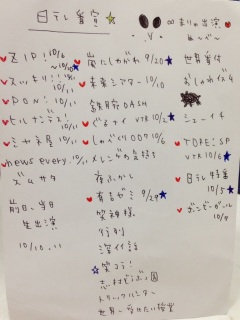 日テレ番宣
∞まりゅ出演
ZIP! 10/6
〜10/10
スッキリ!! 10/11
PON! 10/11
ヒルナンデス! 10/11
ミヤネ屋 10/11
news every. 10/11
ズムサタ
前日、当日
生出演
10/10.11
嵐にしやがれ 9/20
未来シアター 10/10
鉄腕DASH
ぐるナイ VTR 10/2
しゃべり007 10/6
メレンゲの気持ち
夜ふかし
有吉ゼミ 9/29
笑神様
行列
深イイ話
笑コラ!
志村どうぶつ園
トリックハンター
世界一受けたい授業
世界番付
おしゃれイズム
シューイチ
TOPE:SP
VTR 10/6
日テレ特番
10/5
ボンビーガール
10/7